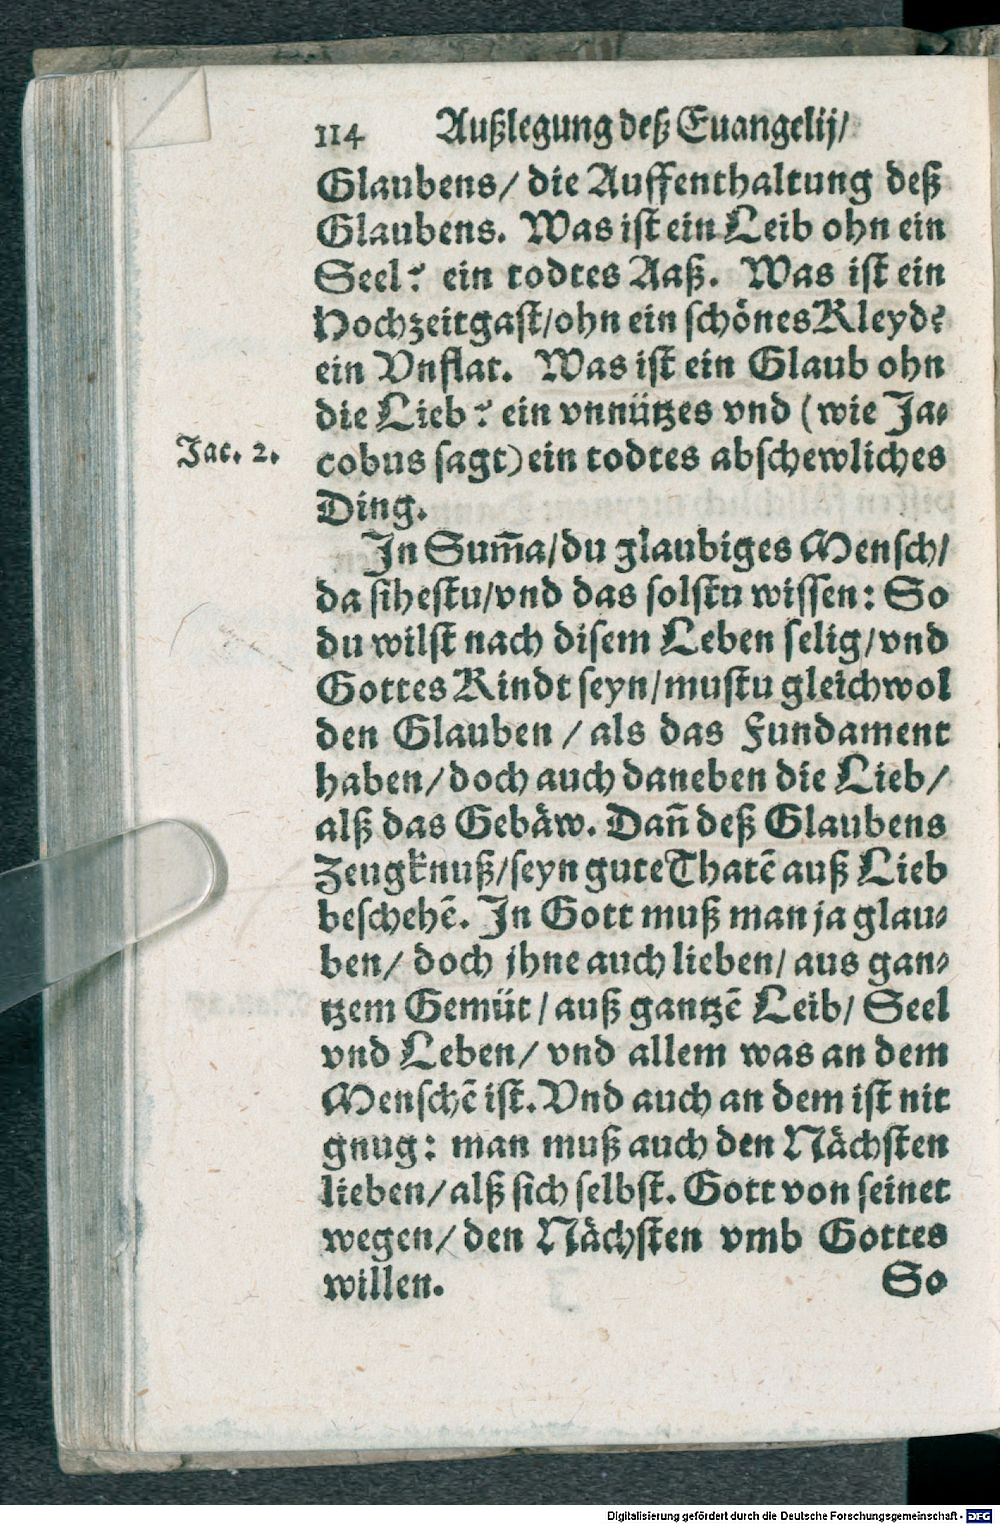 114 Außlegung deß Euangelij/
Glaubens/ die Auffenthaltung deß
Glaubens. Was ist ein Leib ohn ein
Seel? ein todtes Aaß. Was ist ein
Hochzeitgast/ohn ein schönes Kleyd?
ein Vnflat. Was ist ein Glaub ohn
die Lieb? ein vnnützes vnd (wie Ja-
Jac. 2.
cobus sagt) ein todtes abschewliches
Ding.
Jn Sum̃a/du glaubiges Mensch/
da sihestu/vnd das solstu wissen: So
du wilst nach disem Leben selig/vnd
Gottes Kindt seyn/mustu gleichwol
den Glauben / als das Fundament
haben/doch auch daneben die Lieb/
alß das Gebäw. Dañ deß Glaubens
Zeugknuß/seyn gute Thatẽ auß Lieb
beschehẽ. Jn Gott muß man ja glau-
ben/ doch jhne auch lieben/ aus gan-
tzem Gemüt/ auß gantzẽ Leib/ Seel
vnd Leben/ vnd allem was an dem
Menschẽ ist. Vnd auch an dem ist nit
gnug: man muß auch den Nächsten
lieben/alß sich selbst. Gott von seinet
wegen/ den Nächsten vmb Gottes
willen.
So
Digitalisierung gefördert durch die Deutsche Forschungsgemeinschaft - DFG